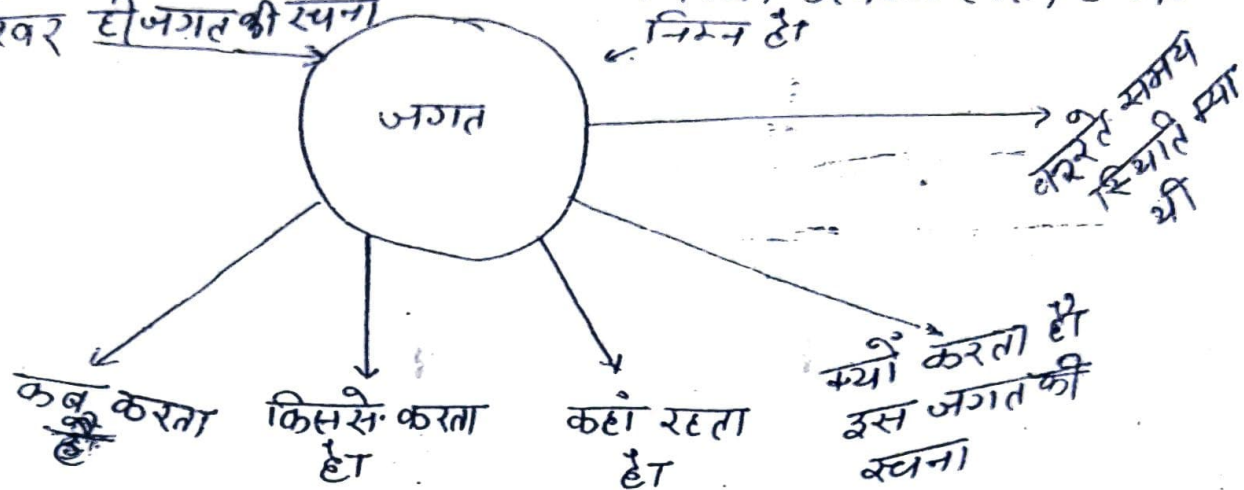 ही जगत की रचना
निम्न है।
जगत
करते समय
स्थिति क्या
थी
कब करता
है
किससे करता
है।
कहां रहता
है।
क्यों करता है।
इस जगत की
रचना